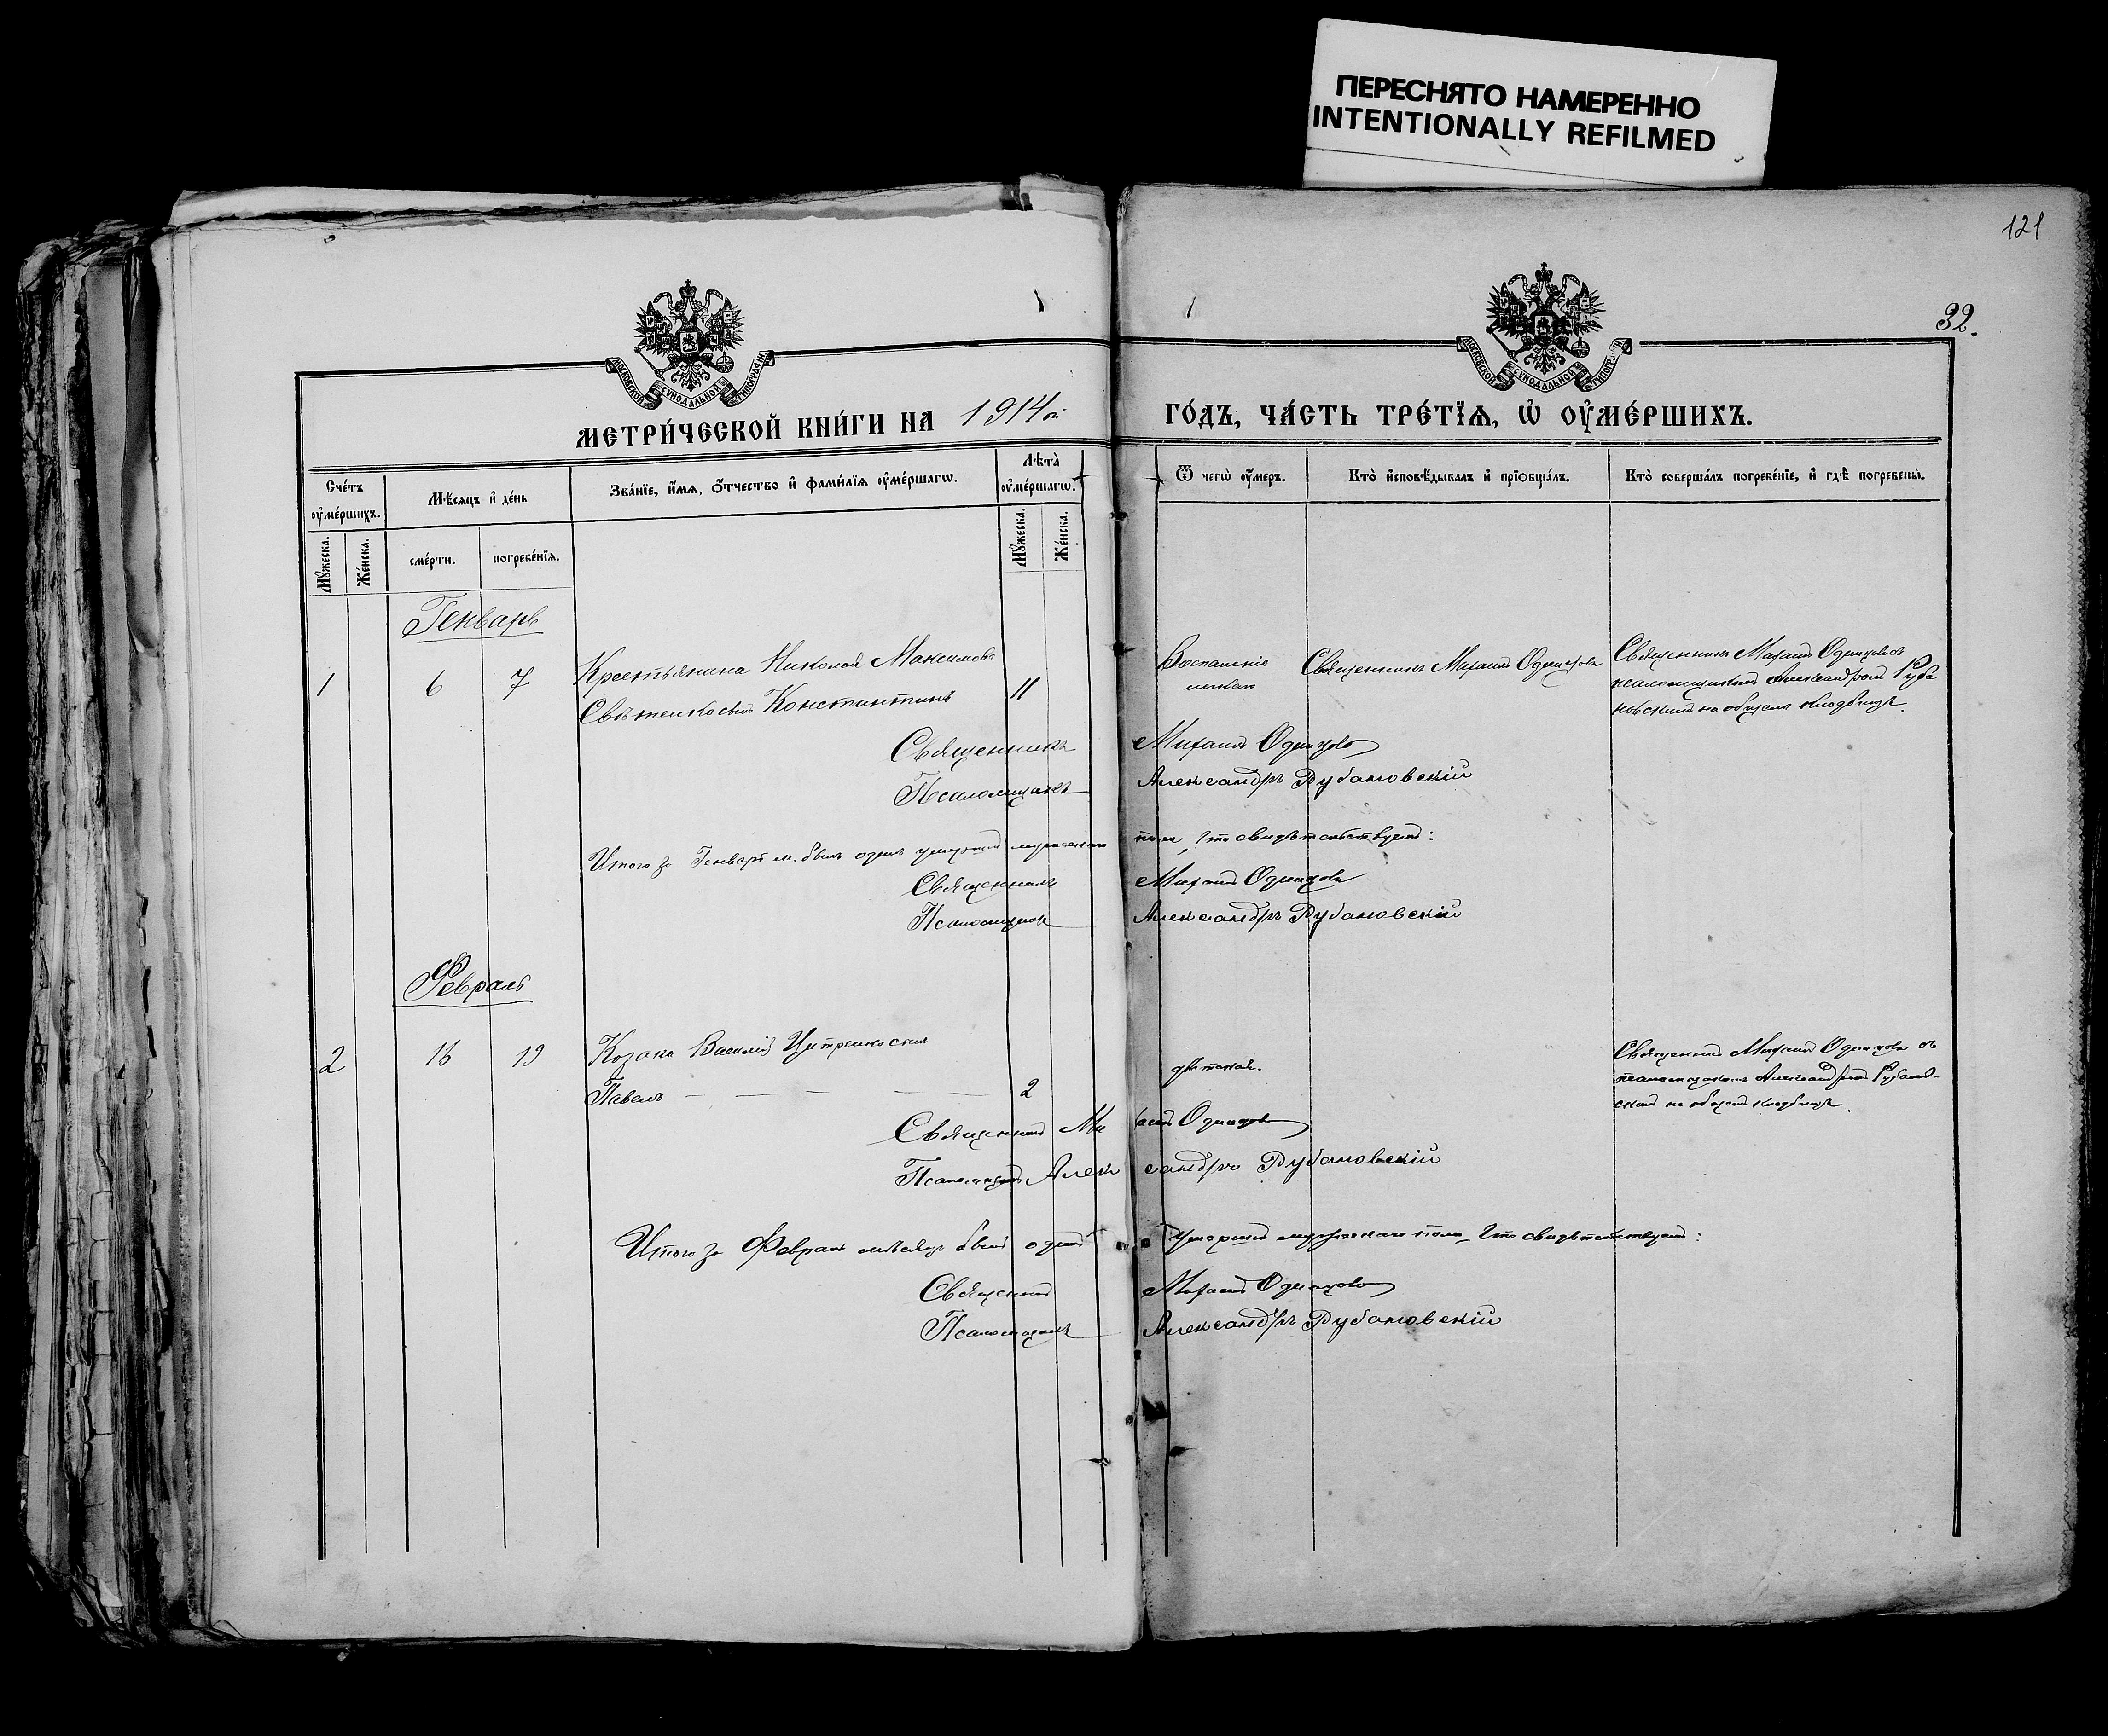 ПЕРЕСНЯТО НАМЕРЕННО
INTENTIONALLY REFILMED
121
32.
МОСКОВСКОЙ СѴНОДАЛЬНОЙ ТИПОГРАФІИ
МОСКОВСКОЙ СѴНОДАЛЬНОЙ ТИПОГРАФІИ
МЕТРИ́ЧЕСКОЙ КНИ́ГИ НА 1914 й ГО́ДЪ, ЧА́СТЬ ТРЕ́ТЇѦ, Ѡ҆ ОУ҆МЕ́РШИХЪ.
Сче́тъ оу҆ме́ршихъ.
Мѣ́сяцъ и҆ де́нь
Зва́нїе, и҆́мѧ, ѻ҆́тчество и҆ фами́лїѧ оу҆ме́ршагѡ.
Лѣта̀ оу҆ме́ршагѡ.
Ѿ чегѡ̀ оу҆́меръ.
Кто̀ и҆сповѣ́дывалъ и҆ прїѡбща́лъ.
Кто̀ соверша́лъ погребе́нїе, и҆ гдѣ̀ погребены̀.
Мꙋ́жеска.
Же́нска.
сме́рти.
погребе́нїѧ.
Мꙋ́жеска.
Же́нска.
Генварь
1 6 7 Крестьянина Николая Максимова
Константинъ 11
Воспаленіе
Священникъ Михаилъ Одинцовъ
Священникъ Михаилъ Одинцовъ съ
псаломщикомъ Александромъ Руба
новскимъ на общемъ кладбищѣ.
Священникъ Михаилъ Одинцовъ
Псаломщикъ Александръ Рубановскій
Итого за Генварь м. былъ одинъ умершій мужескаго пола, что свидѣтельствуемъ:
Священникъ Михаилъ Одинцовъ
Псаломщикъ Александръ Рубановскій
Февраль
2 16 19 Козака Василія сынъ
Павелъ 2
дѣтская.
Священникъ Михаилъ Одинцовъ съ
псаломщикомъ Александромъ Рубанов-
скимъ на общемъ кладбищѣ.
Священникъ Михаилъ Одинцовъ
Псаломщикъ Александръ Рубановскій
Итого за Февраль мѣсяцъ былъ одинъ умершій мужескаго пола, что свидѣтельствуемъ:
Священникъ Михаилъ Одинцовъ
Псаломщикъ Александръ Рубановскій